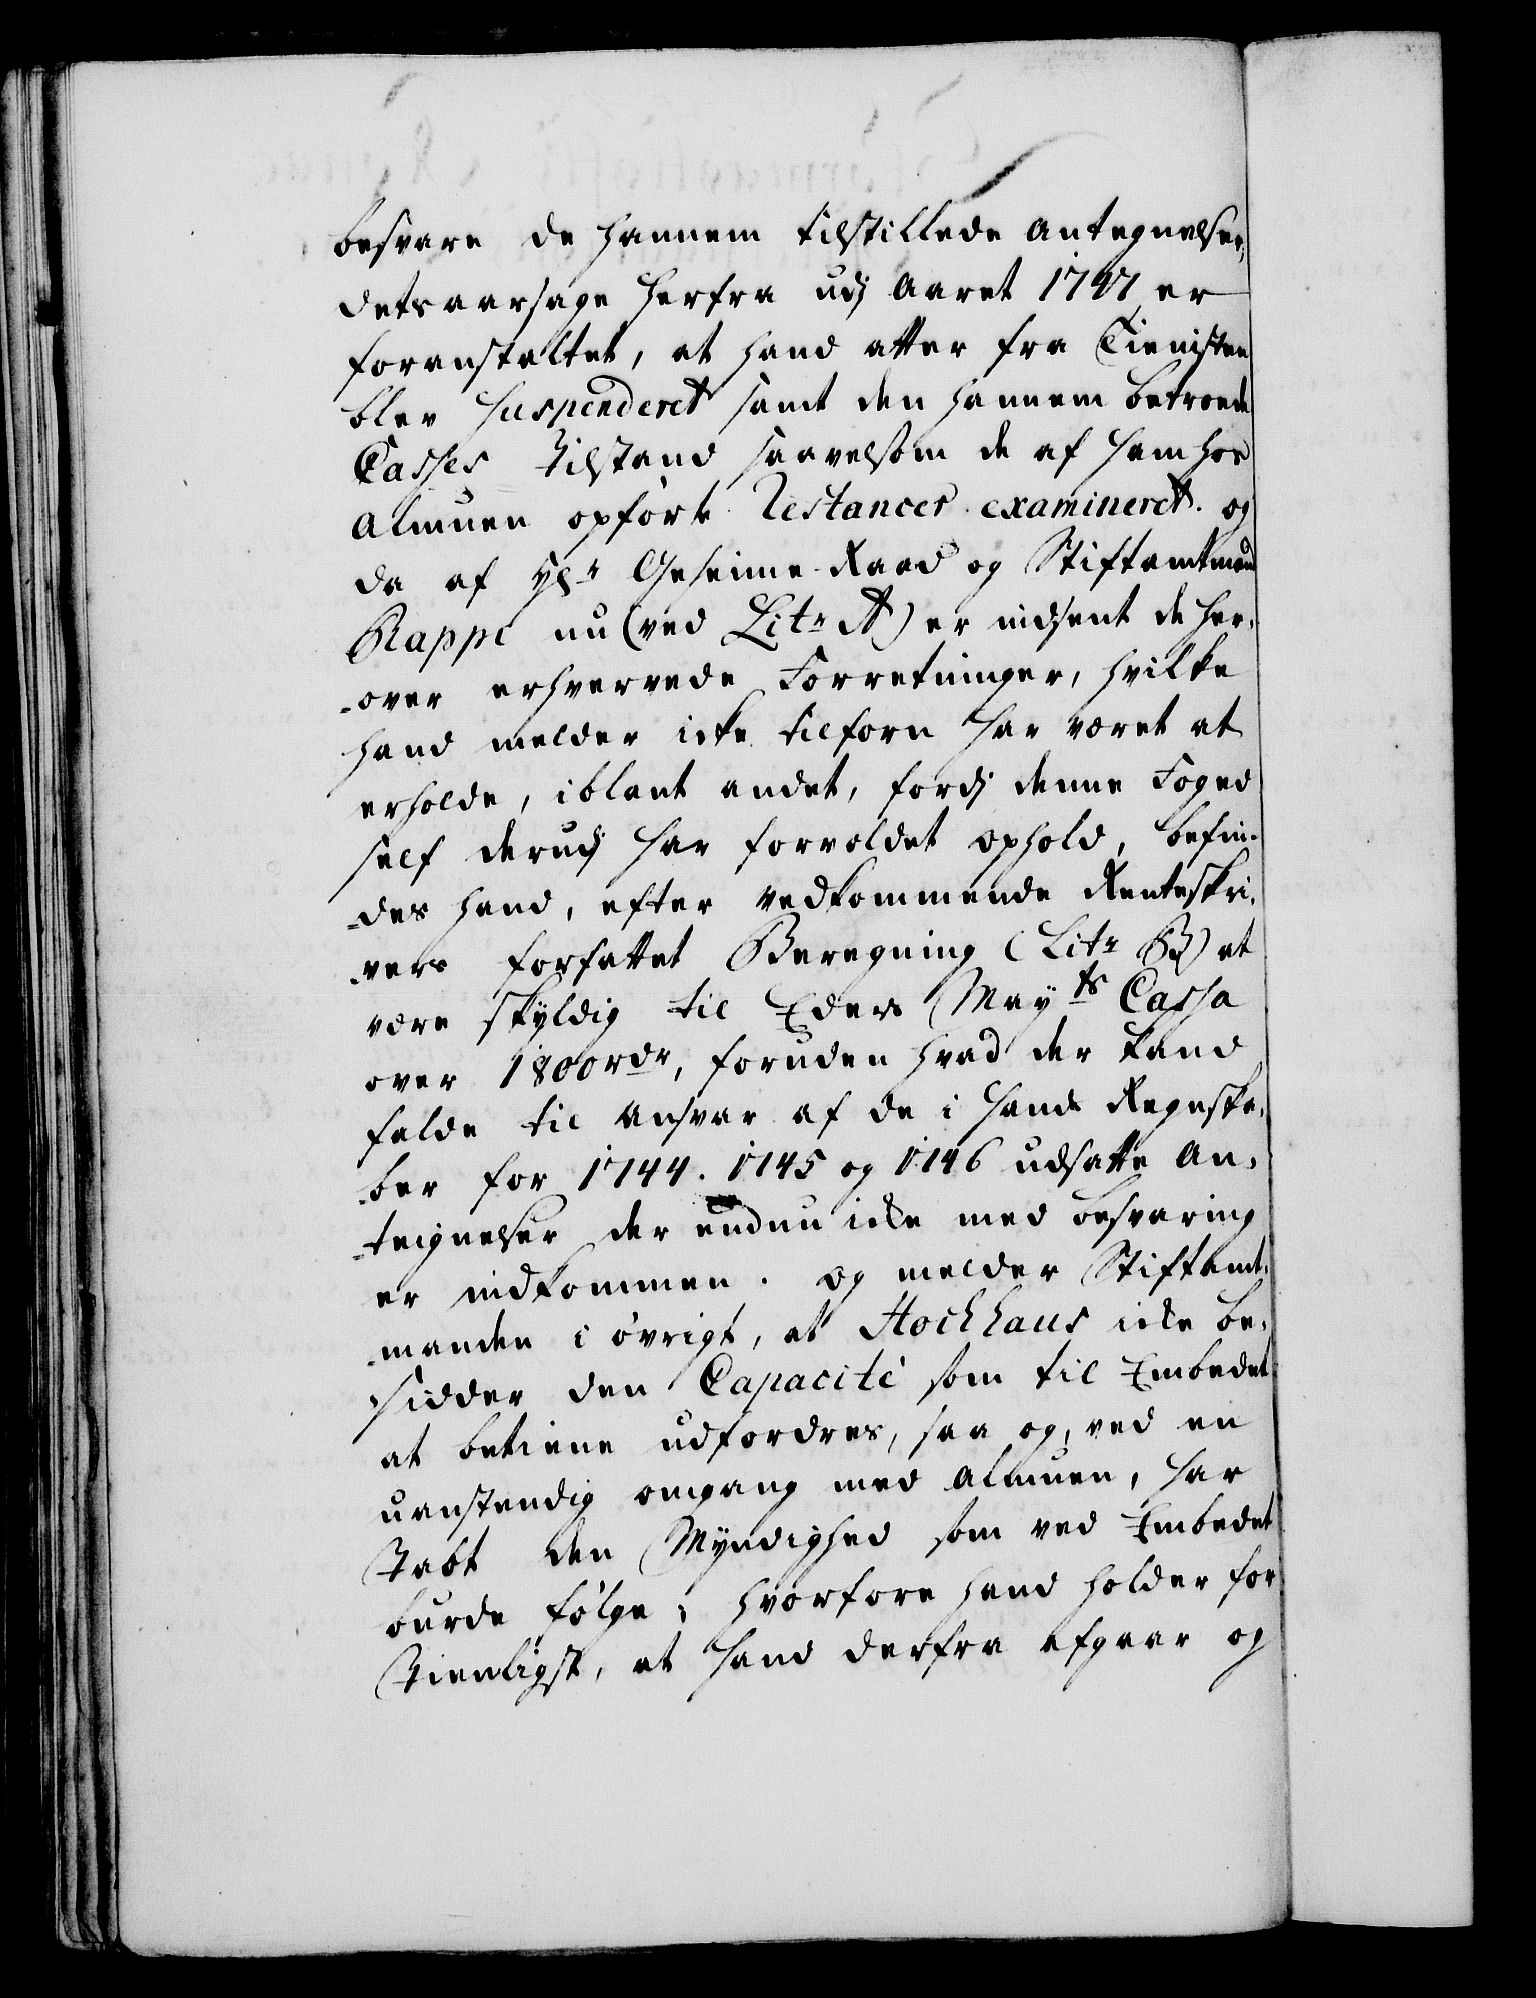 besvare de hannem tilstillede Antegnelser,
dets aarsage herfra udj Aaret 1747 er
foranstaltet, at hand atter fra Tienisten
blev suspenderet samt den hannem betroede
Casses tilstand saavelsom de af ham hos
Almuen opførte Restancer examineret. og
da af Hr. Geheime-Raad og Stiftamtmand
Rappe nu (ved Litr A) er indsent de her-
-over erhvervede Forretninger, hvilke
hand melder icke tilforn har været at
erholde, iblant andet, fordj denne Foged
self derudj har forvoldet ophold, befin-
-des hand, efter vedkommende Renteskri-
-vers forfattet Beregning (Litr B) at
være skyldig til Eders Mayts Cassa
over 1800 rdr, foruden hvad der kand
falde til Ansvar af de i hands Regnska-
-ber for 1744. 1745 og 1746 udsatte An-
-teignelser der endnu icke med besvaring
er indkommen. og melder Stiftamt-
-manden i øvrigt, at Hockhaus icke be-
sidder den Capacité som til Embedet
at betiene udfordres, saa og, ved en
uanstendig omgang med Almuen, har
tabt den Myndighed som ved Embedet
burde følge; hvorfore hand holder for
tienligst, at hand derfra afgaar og